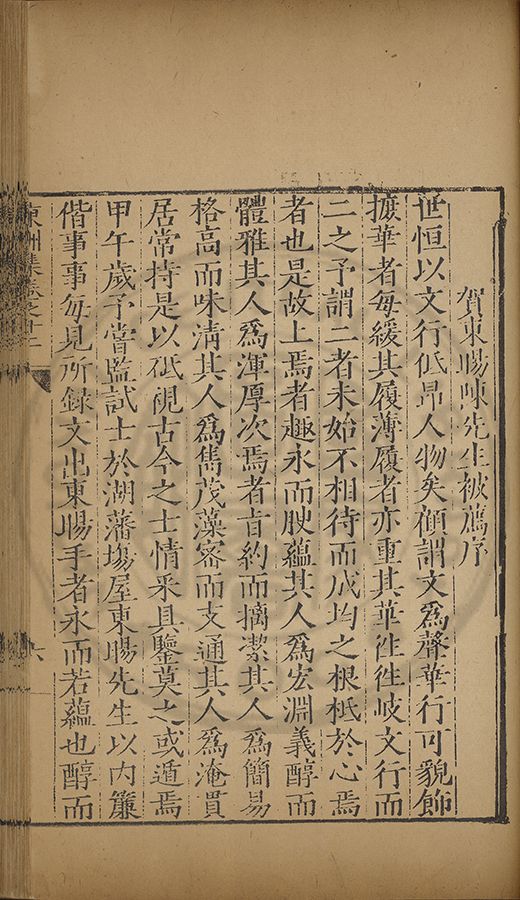 賀東暘陳先生被薦序
世恒以文行低昂人物矣顧謂文為聲華行可貌飾
摭華者每緩其履薄履者亦重其華徃徃歧文行而
二之予謂二者未始不相待而成均之根柢於心焉
者也是故上焉者趣永而腴蘊其人爲宏淵義醇而
體雅其人爲渾厚次焉者旨約而摛潔其人爲簡易
格高而味清其人爲雋茂藻密而支通其人爲淹貫
居常持是以砥硯古今之士情釆具鑒莫之或遁焉
甲午歲予嘗監試士於湖藩塲屋東暘先生以内簾
偕事事每見所錄文出東暘手者永而若蘊也醇而
東洲集卷之十二
六